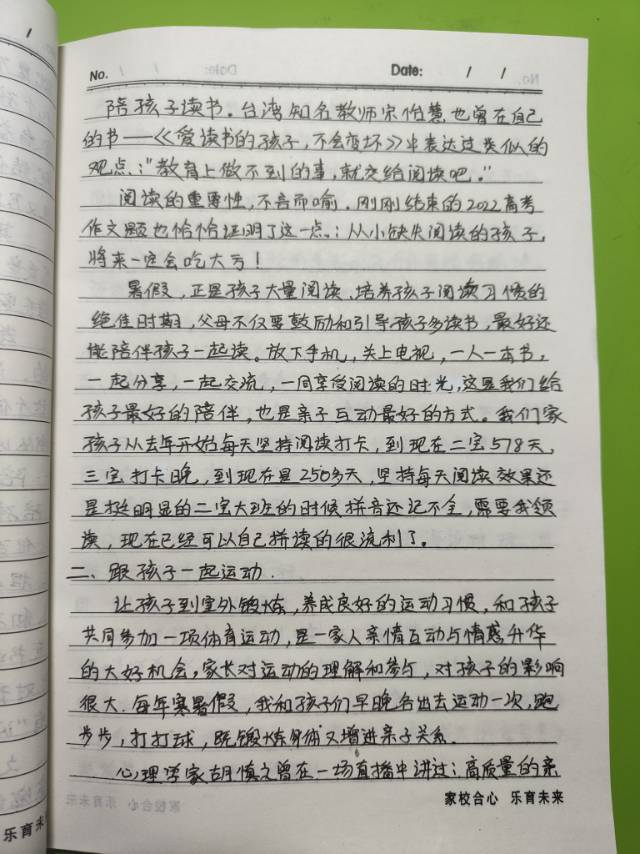 No.
Date: / /
陪孩子读书。台湾知名教师宋怡慧也曾在自己
的书——《爱读书的孩子,不会变坏》中表达过类似的
观点:"教育上做不到的事,就交给阅读吧。"
阅读的重要性,不言而喻.刚刚结束的2022高考
作文题也恰恰证明了这一点:从小缺失阅读的孩子,
将来一定会吃大亏!
暑假,正是孩子大量阅读、培养孩子阅读习惯的
绝佳时期,父母不仅要鼓励和引导孩子多读书,最好还
能陪伴孩子一起读。放下手机,关上电视,一人一本书,
一起分享,一起交流,一同享受阅读的时光,这是我们给
孩子最好的陪伴,也是亲子互动最好的方式。我们家
孩子从去年开始每天坚持阅读打卡,到现在二宝578天,
三宝打卡晚,到现在是250多天,坚持每天阅读效果还
是挺明显的二宝大班的时候拼音还记不全,需要我领
读,现在已经可以自己拼读的很流利了。
二、跟孩子一起运动.
让孩子到室外锻炼,养成良好的运动习惯,和孩子
共同参加一项体育运动,是一家人亲情互动与情感升华
的大好机会,家长对运动的理解和参与,对孩子的影响
很大.每年寒暑假,我和孩子们早晚各出去运动一次,跑
步步,打打球,既锻炼身体又增进亲子关系.
心理学家胡慎之曾在一场直播中讲过:高质量的亲
家校合心 乐育未来
乐育未来